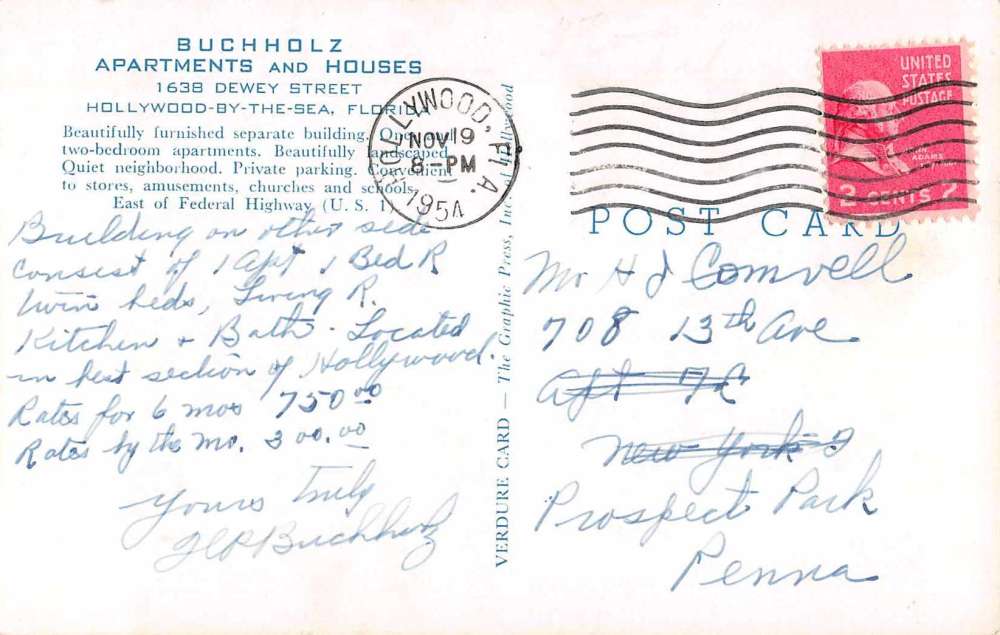 BUCHHOLZ
APARTMENTS AND HOUSES
1638 DEWEY STREET
HOLLYWOOD-BY-THE-SEA, FLORIDA
Beautifully furnished separate building. One and
two-bedroom apartments. Beautifully landscaped.
Quiet neighborhood. Private parking. Convenient
to stores, amusements, churches and schools.
East of Federal Highway (U. S. 1)
Building on other side
consist of 1 Apt 1 Bed R
twin beds, Living R.
Kitchen + Bath. Located
in best section of Hollywood.
Rates for 6 mos 750.00
Rates by the Mo. 300.00
Yours Truly
Buchholz
VERDURE CARD — The Graphic Press, Inc., Hollywood
HOLLYWOOD, FLA.
NOV 19
8-PM
1954
UNITED
STATES
POSTAGE
JOHN
ADAMS
2 CENTS 2
POST CARD
Mr H J Comvell
708 13th Ave
Apt 7C
New York
Prospect Park
Penna